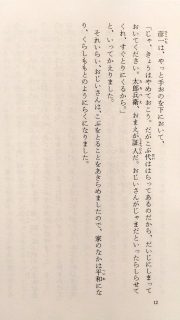 彦一は、やっと手おのを下において、
「じゃ、きょうはやめておこう。だがこぶ代ははらってあるのだから、だいじにしまって
おいてください。太郎兵衛、おまえが証人だ。おじいさんがじゃまだといったらしらせて
くれ、すぐとりにくるから。」
と、いってかえりました。
それいらい、おじいさんは、こぶをとることをあきらめましたので、家のなかは平和にな
り、くらしももとのようにらくになりました。
12